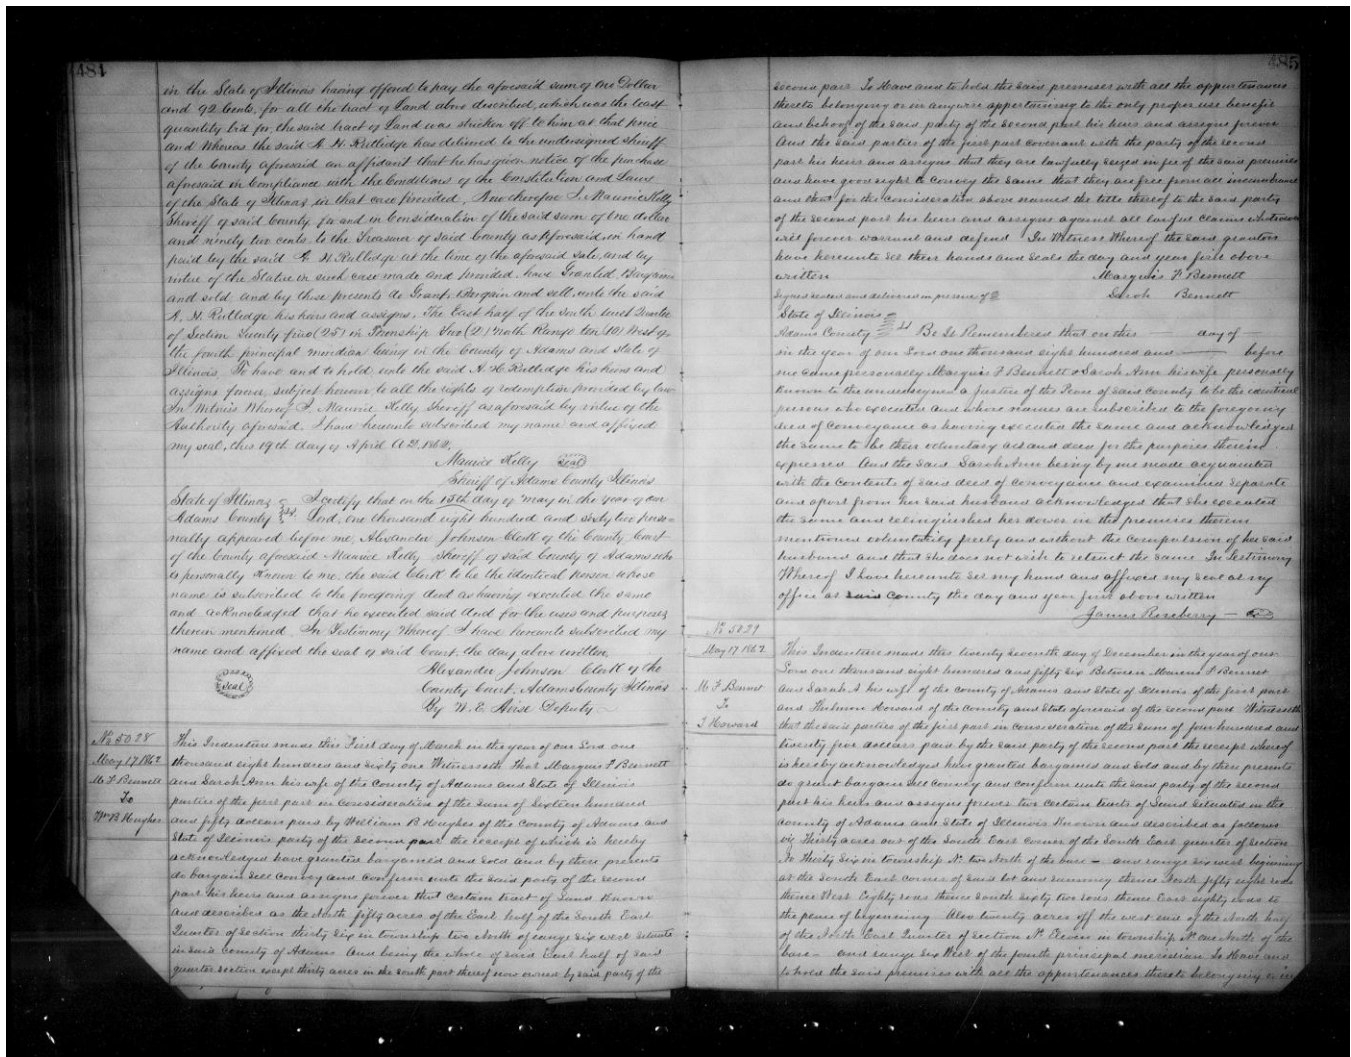 484
in the State of Illinois having offered to pay the aforesaid sum of One Dollar
and 92 Cents, for all the tract of Land above described, which was the least
quantity bid for, the said tract of Land was stricken off to him at that price
and Whereas the said A. H. Rutledge has delivered to the undersigned Sheriff
of the County aforesaid an affidavit that he has given notice of the purchase
aforesaid in Compliance with the Conditions of the Constitution and Laws
of the State of Illinois in that case provided, Now therefore I, Maurice Kelly
Sheriff of said County, for and in Consideration of the said sum of One dollar
and ninety two cents, to the Treasurer of said County as aforesaid, in hand
paid by the said A. H. Rutledge at the time of the aforesaid sale, and by
virtue of the Statue in such case made and provided, have Granted, Bargained
and sold, and by these presents do Grant, Bargain and sell, unto the said
A. H. Rutledge his heirs and assigns, The East half of the South West Quarter
of Section Twenty five (25) in Township Two (2) North Range ten (10) West of
the fourth principal meridian being in the County of Adams and State of
Illinois, To have and to hold unto the said A. H. Rutledge his heirs and
assigns forever, subject however to all the rights of redemption provided by law
In Witness Whereof I, Maurice Kelly Sheriff as aforesaid by virtue of the
Authority aforesaid, I have hereunto subscribed my name and affixed
my seal, this 19th day of April A.D. 186
Maurice Kelly Seal
Sheriff of Adams County Illinois
State of Illinois } I certify that on the 15th day of May in the year of our
Adams County } ss. Lord, one thousand eight hundred and sixty two perso-
nally appeared before me, Alexander Johnson Clerk of the County Court
of the County aforesaid Maurice Kelly Sheriff of said County of Adams who
is personally known to me, the said Clerk to be the identical person whose
name is subscribed to the foregoing Deed as having executed the same
and acknowledged that he executed said Deed for the uses and purposes
therein mentioned, In Testimony Whereof I have hereunto subscribed my
name and affixed the seal of said Court, the day above written,
Seal
Alexander Johnson Clerk of the
County Court, Adams County Illinois
By W. E. Avise Deputy
No 5028
May 17 1862
M. F Bennett
To
Wm B Hughes
This Indenture made this First day of March in the year of our Lord one
thousand eight hundred and sixty one Witnesseth That Marquis F Bennett
and Sarah Ann his wife of the County of Adams and State of Illinois
parties of the first part in consideration of the Sum of Sixteen hundred
and fifty dollars paid by William B. Hughes of the County of Adams and
State of Illinois party of the second part the receipt of which is hereby
acknowledged have granted bargained and sold and by these presents
do bargain sell convey and confirm unto the said party of the second
part his heirs and assigns forever that certain tract of Land Known
and described as the North fifty acres of the East half of the South East
Quarter of section thirty six in township two North of range six west situate
in said county of Adams And being the whole of said East half of said
quarter section except thirty acres in the south part thereof now owned by said party of the
485
second part To Have and to hold the said premises with all the appurtenances
thereto belonging or in anywise appertaining to the only proper use benefit
and behoof of the said party of the second part his heirs and assigns forever
And the said parties of the first part covenant with the party of the second
part his heirs and assigns that they are lawfully seized in fee of the said premises
and have good right to convey the same that they are free from all incumbrance
and that for the consideration above named the title thereof to the said party
of the second part his heirs and assigns against all lawful claims whatsoever
will forever warrant and defend In Witness Whereof the said grantors
have hereunto set their hands and seals the day and year first above
written Marquis F Bennett
Signed sealed and delivered in presence of Sarah Bennett
State of Illinois
Adams County } ss Be It Remembered that on this — day of —
in the year of our Lord one thousand eight hundred and — before
me came personally Marquis F Bennett & Sarah Ann his wife personally
Known to the undersigned a Justice of the Peace of said County to be the identical
persons who executed and whose names are subscribed to the foregoing
deed of conveyance as having executed the same and acknowledged
the same to be their voluntary act and deed for the purposes therein
expressed And the said Sarah Ann being by me made acquainted
with the contents of said deed of conveyance and examined separate
and apart from her said husband acknowledged that she executed
the same and relinquished her dower in the premises therein
mentioned voluntarily freely and without the compulsion of her said
husband and that she does not wish to retract the same In Testimony
Whereof I have hereunto set my hand and affixed my seal at my
office at said county the day and year first above written
James Roseberry —
No 5029
May 17 1862
M F Bennet
To
T Howard
This Indenture made this twenty seventh day of December in the year of our
Lord one thousand eight hundred and fifty six Between F Bennet
and Sarah A his wife of the County of Adams and State of Illinois of the first part
and Howard of the County and State aforesaid of the second part Witnesseth
that the said parties of the first part in consideration of the Sum of four hundred and
twenty five dollars paid by the said party of the second part the receipt whereof
is hereby acknowledged have granted bargained and sold and by these presents
do grant bargain sell convey and confirm unto the said party of the second
part his heirs and assigns forever two certain tracts of Land situated in the
county of Adams and State of Illinois Known and described as follows
viz Thirty acres out of the South East corner of the South East quarter of section
No Thirty Six in township No two North of the base — and range six west beginning
at the South East corner of said lot and running thence North fifty eight rods
thence West Eighty rods thence South sixty two rods thence East eighty rods to
the place of beginning Also twenty acres off the west end of the North half
of the North East Quarter of section No Eleven in township No one North of the
base — and range six West of the fourth principal meridian To Have and
to hold the said premises with all the appurtenances thereto belonging or in